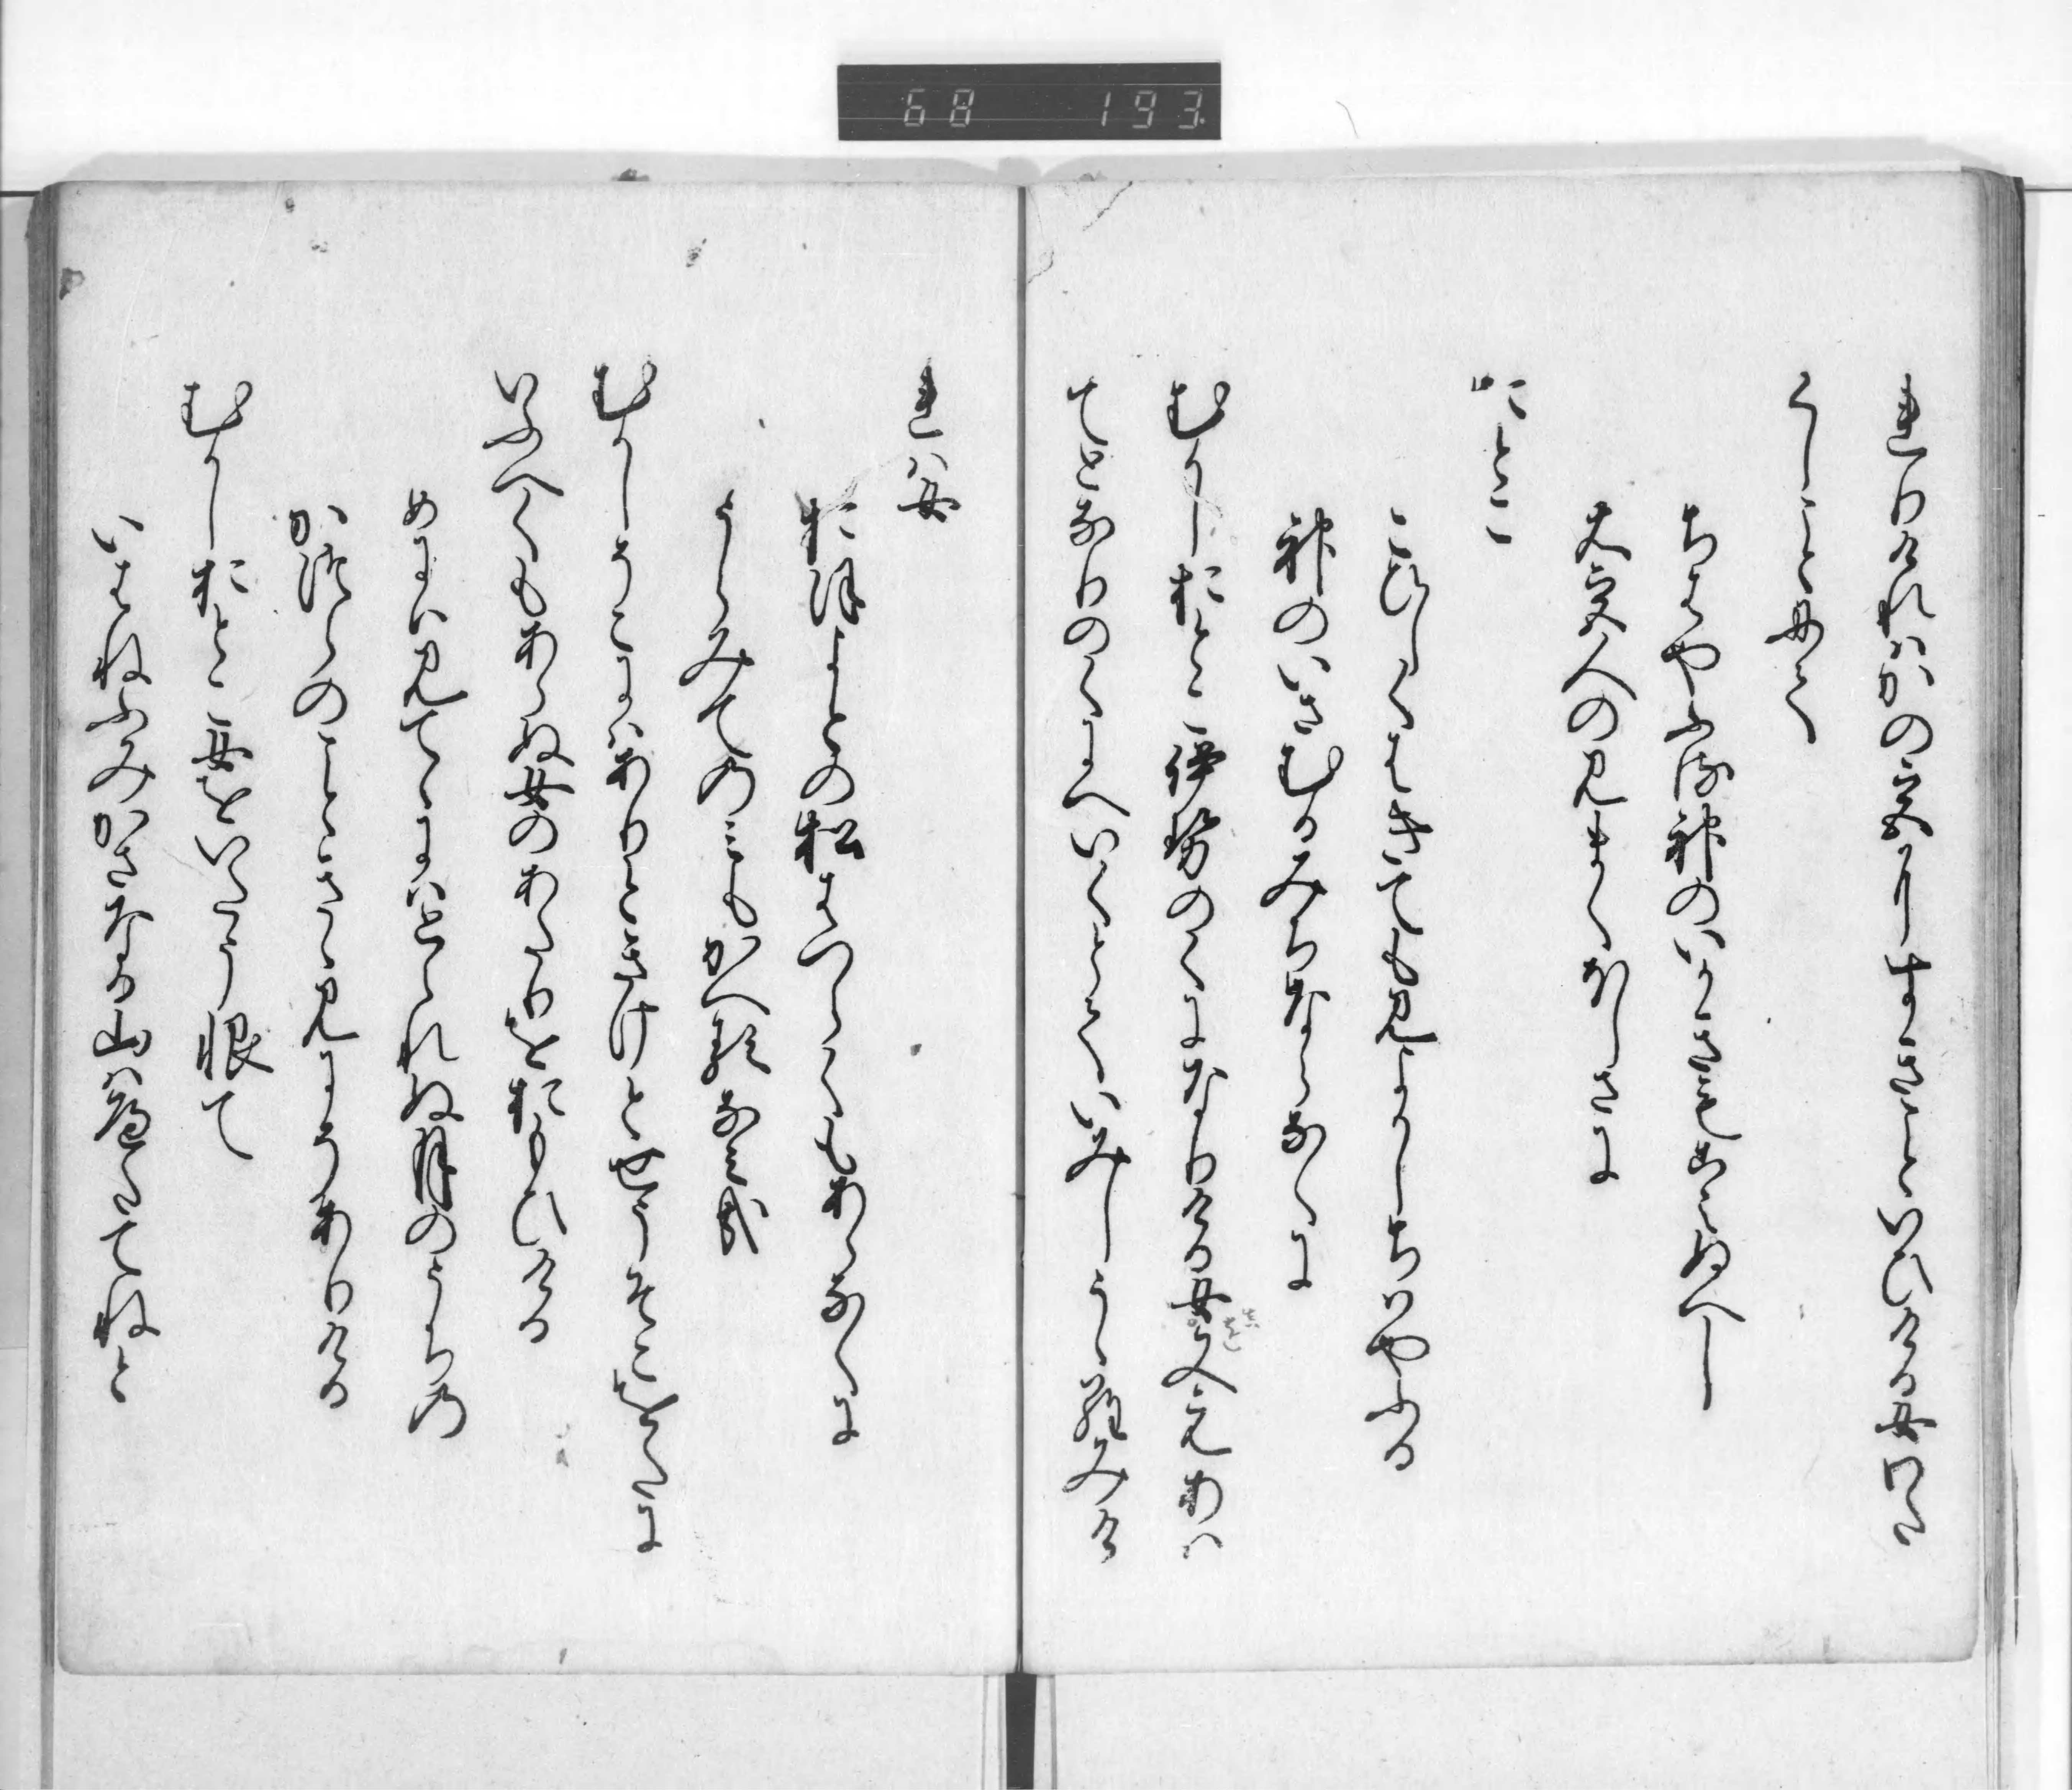 れりけれはかの宮にすきこといひける女わた
くしことにて
ちはやふる神のいかきもこえぬへし
大宮人の見まくほしさに
おとこ
こひしくはきても見よかしちはやふる
神のいさむるみちならなくに
むかしおとこ伊勢のくになりける女又えあは
てとなりのくにへいくとていみしうゝらみけ
れは女
おほよとの松はつらくもあらなくに
うらみてのみもかへるなみ哉
むかしそこにはありときけとせうそこをたに
いふへくもあらぬ女のあたりをおもひける
めには見てゝにはとられぬ月のうちの
かつらのこときゝ見にそありける
むかしおとこ女をいたう恨て
いはねふみかさなる山はへたてねと
68 193